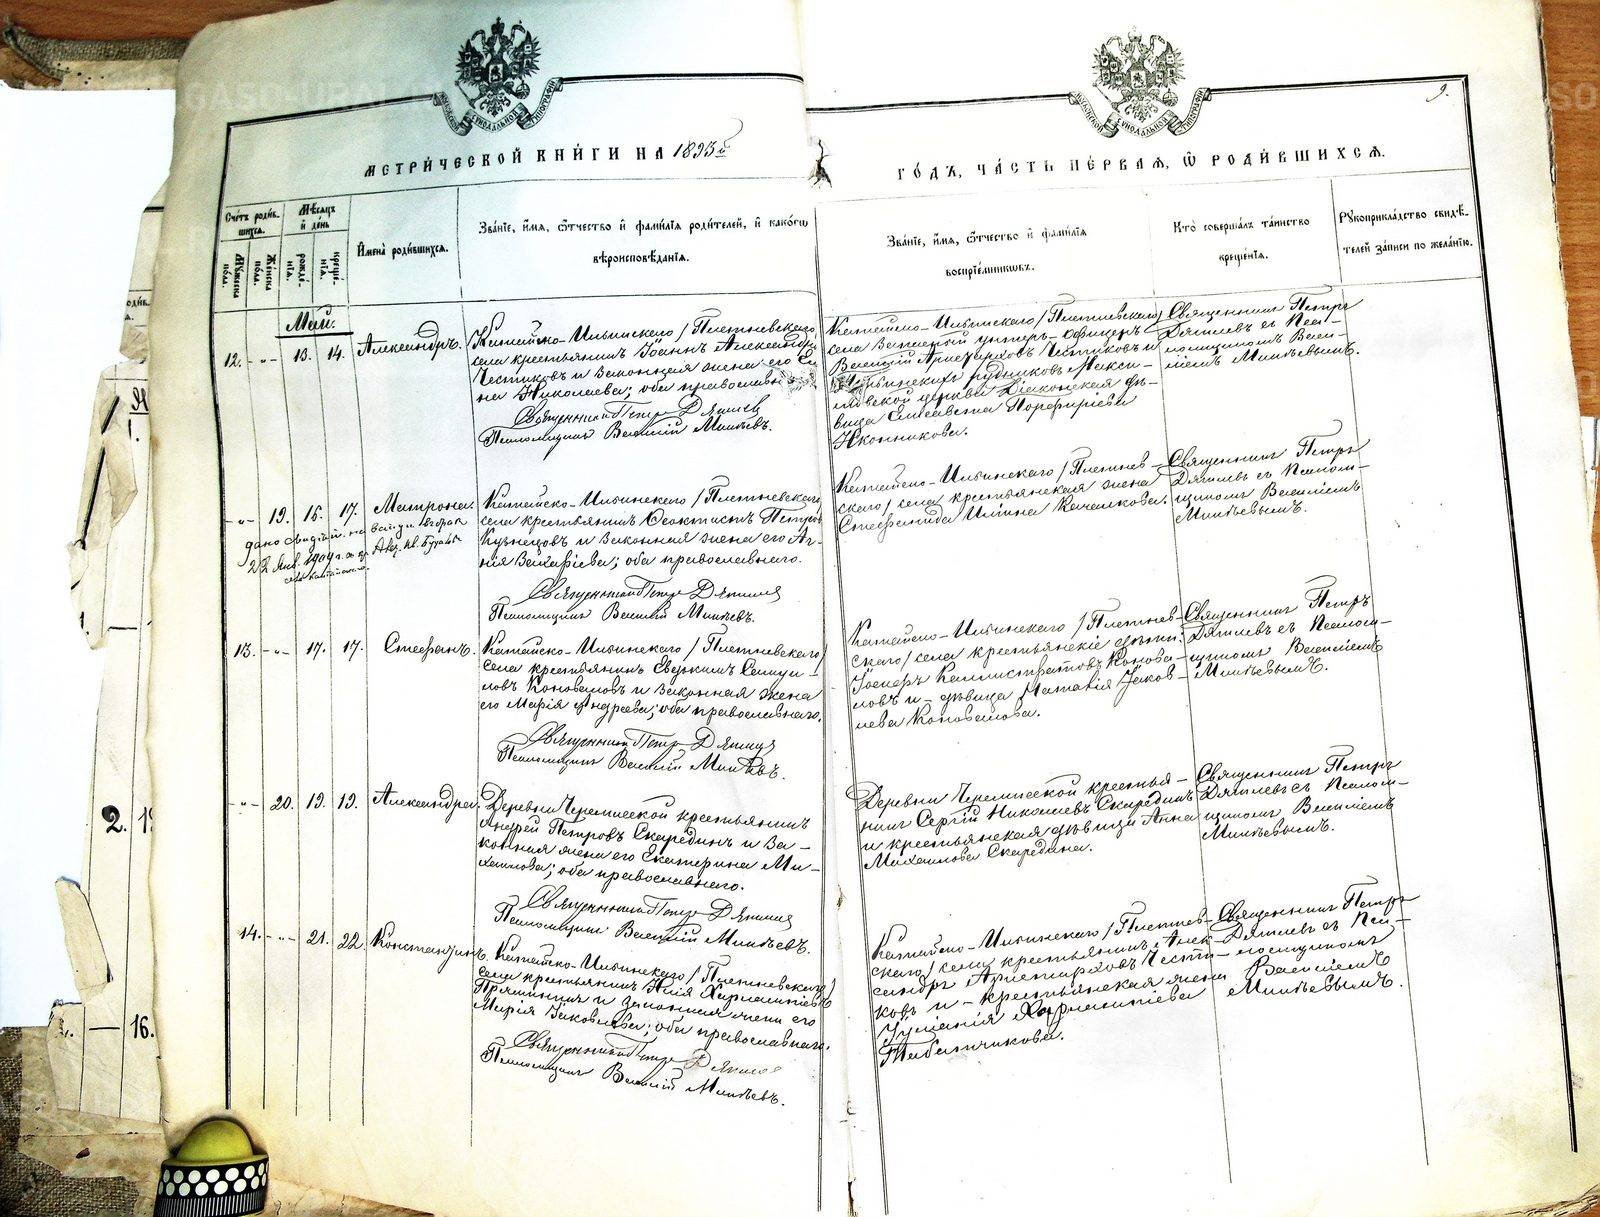 МЕТРИ́ЧЕСКОЙ КНИ́ГИ НА 1893й ГО́ДЪ, ЧА́СТЬ ПЕ́РВАЯ, Ѡ РОДИ́ВШИХСѦ.
9.
Сче́тъ роди́в-
шихсѧ.
Мꙋ́жеска пола.
Же́нска пола.
Мѣ́сѧцъ
и де́нь
рожде́-
нїѧ.
креще́-
нїѧ.
И҆мена̀ роди́вшихсѧ.
Зва́нїе, и҆́мѧ, ѻ҆́тчество и҆ фами́лїѧ роди́телей, и҆ како́гѡ
вѣроисповѣ́данїѧ.
Зва́нїе, и҆́мѧ, ѻ҆́тчество и҆ фами́лїѧ
воспрїе́мникѡвъ.
Кто̀ соверша́лъ та́инство
креще́нїѧ.
Рꙋкоприкла́дство свидѣ́-
телей за́писи по жела́нїю.
Май.
12. -„- 13. 14. Александръ.
Катайско-Ильинскаго /Плетневскаго/
села крестьянинъ Іоаннъ Александро
Честиковъ и законная жена его
на Николаева; оба православн
Священникъ Петръ Дягилев
Псаломщикъ Василій Михѣевъ.
Катайско-Ильинскаго /Плетневскаго/
села Запасный унтеръ-офицеръ
Василій Аристарховъ Честиковъ и
рудниковъ Макси-
ловской церкви Діаконская дѣ-
вица Елисавета Порфиріева
Иконникова.
Священникъ Петръ
Дягилевъ съ Псал-
ломщикомъ Васи-
ліемъ Михѣевымъ.
-„- 19. 15. 17. Матрона.
22 Янв. 1909 г.
Катайско-Ильинскаго /Плетневскаго/
села крестьянинъ Феоктистъ Петров
Кузнецовъ и законная жена его Аг-
нія Захаріева; оба православнаго.
Священникъ Петръ Дягилев
Псаломщикъ Василій Михѣевъ.
Катайско-Ильинскаго /Плетнев-
скаго/ села крестьянская жена
Стефанида Ильина Качалкова.
Священникъ Петръ
Дягилевъ съ Псалом-
щикомъ Василіемъ
Михѣевымъ.
13. -„- 17. 17. Стефанъ.
Катайско-Ильинскаго /Плетневскаго/
села крестьянинъ Савинъ Самуи-
ловъ Коноваловъ и законная жена
его Марія Андреева; оба православнаго.
Священникъ Петръ Дягилев
Псаломщикъ Василій Михѣевъ.
Катайско-Ильинскаго /Плетнев-
скаго/ села крестьянскіе дѣти:
Іосифъ Каллистратовъ Конова-
ловъ и дѣвица Наталія Яков-
лева Коновалова.
Священникъ Петръ
Дягилевъ съ Псалом-
щикомъ Василіемъ
Михѣевымъ.
-„- 20. 19. 19. Александра.
Деревни Черемисской крестьянинъ
Андрей Петровъ Скарединъ и за-
конная жена его Екатерина Ми-
хаилова; оба православнаго.
Священникъ Петръ Дягилев
Псаломщикъ Василій Михѣевъ.
Деревни Черемисской крестья-
нинъ Сергій Николаевъ Скарединъ
и крестьянская дѣвица Анна
Михаилова Скаредина.
Священникъ Петръ
Дягилевъ съ Псалом-
щикомъ Василіемъ
Михѣевымъ.
14. -„- 21. 22. Константинъ.
Катайско-Ильинскаго /Плетневскаго/
села крестьянинъ Илія Харлампіевъ
Пряшинъ и законная жена его
Марія Іаковлева; оба православнаго.
Священникъ Петръ Дягилев
Псаломщикъ Василій Михѣевъ.
Катайско-Ильинскаго /Плетнев-
скаго/ села крестьянинъ Алек-
сандръ Аристарховъ Чести-
ковъ и крестьянская жена
Іуліанія Харлампіева
Табатчикова.
Священникъ Петръ
Дягилевъ съ Пса-
ломщикомъ
Василіемъ
Михѣевымъ.
2.
16.